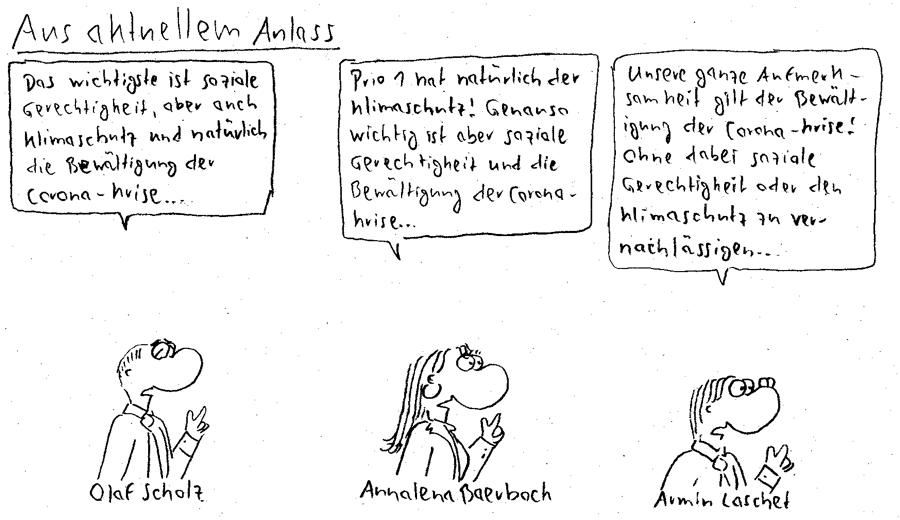 Aus aktuellem Anlass
Das wichtigste ist soziale
Gerechtigkeit, aber auch
Klimaschutz und natürlich
die Bewältigung der
Corona-Krise...
Prio 1 hat natürlich der
Klimaschutz! Genauso
wichtig ist aber soziale
Gerechtigkeit und die
Bewältigung der Corona-
krise...
Unsere ganze Aufmerk-
samkeit gilt der Bewält-
igung der Corona-Krise!
Ohne dabei soziale
Gerechtigkeit oder den
Klimaschutz zu ver-
nachlässigen...
Olaf Scholz
Annalena Baerboch
Armin Laschet